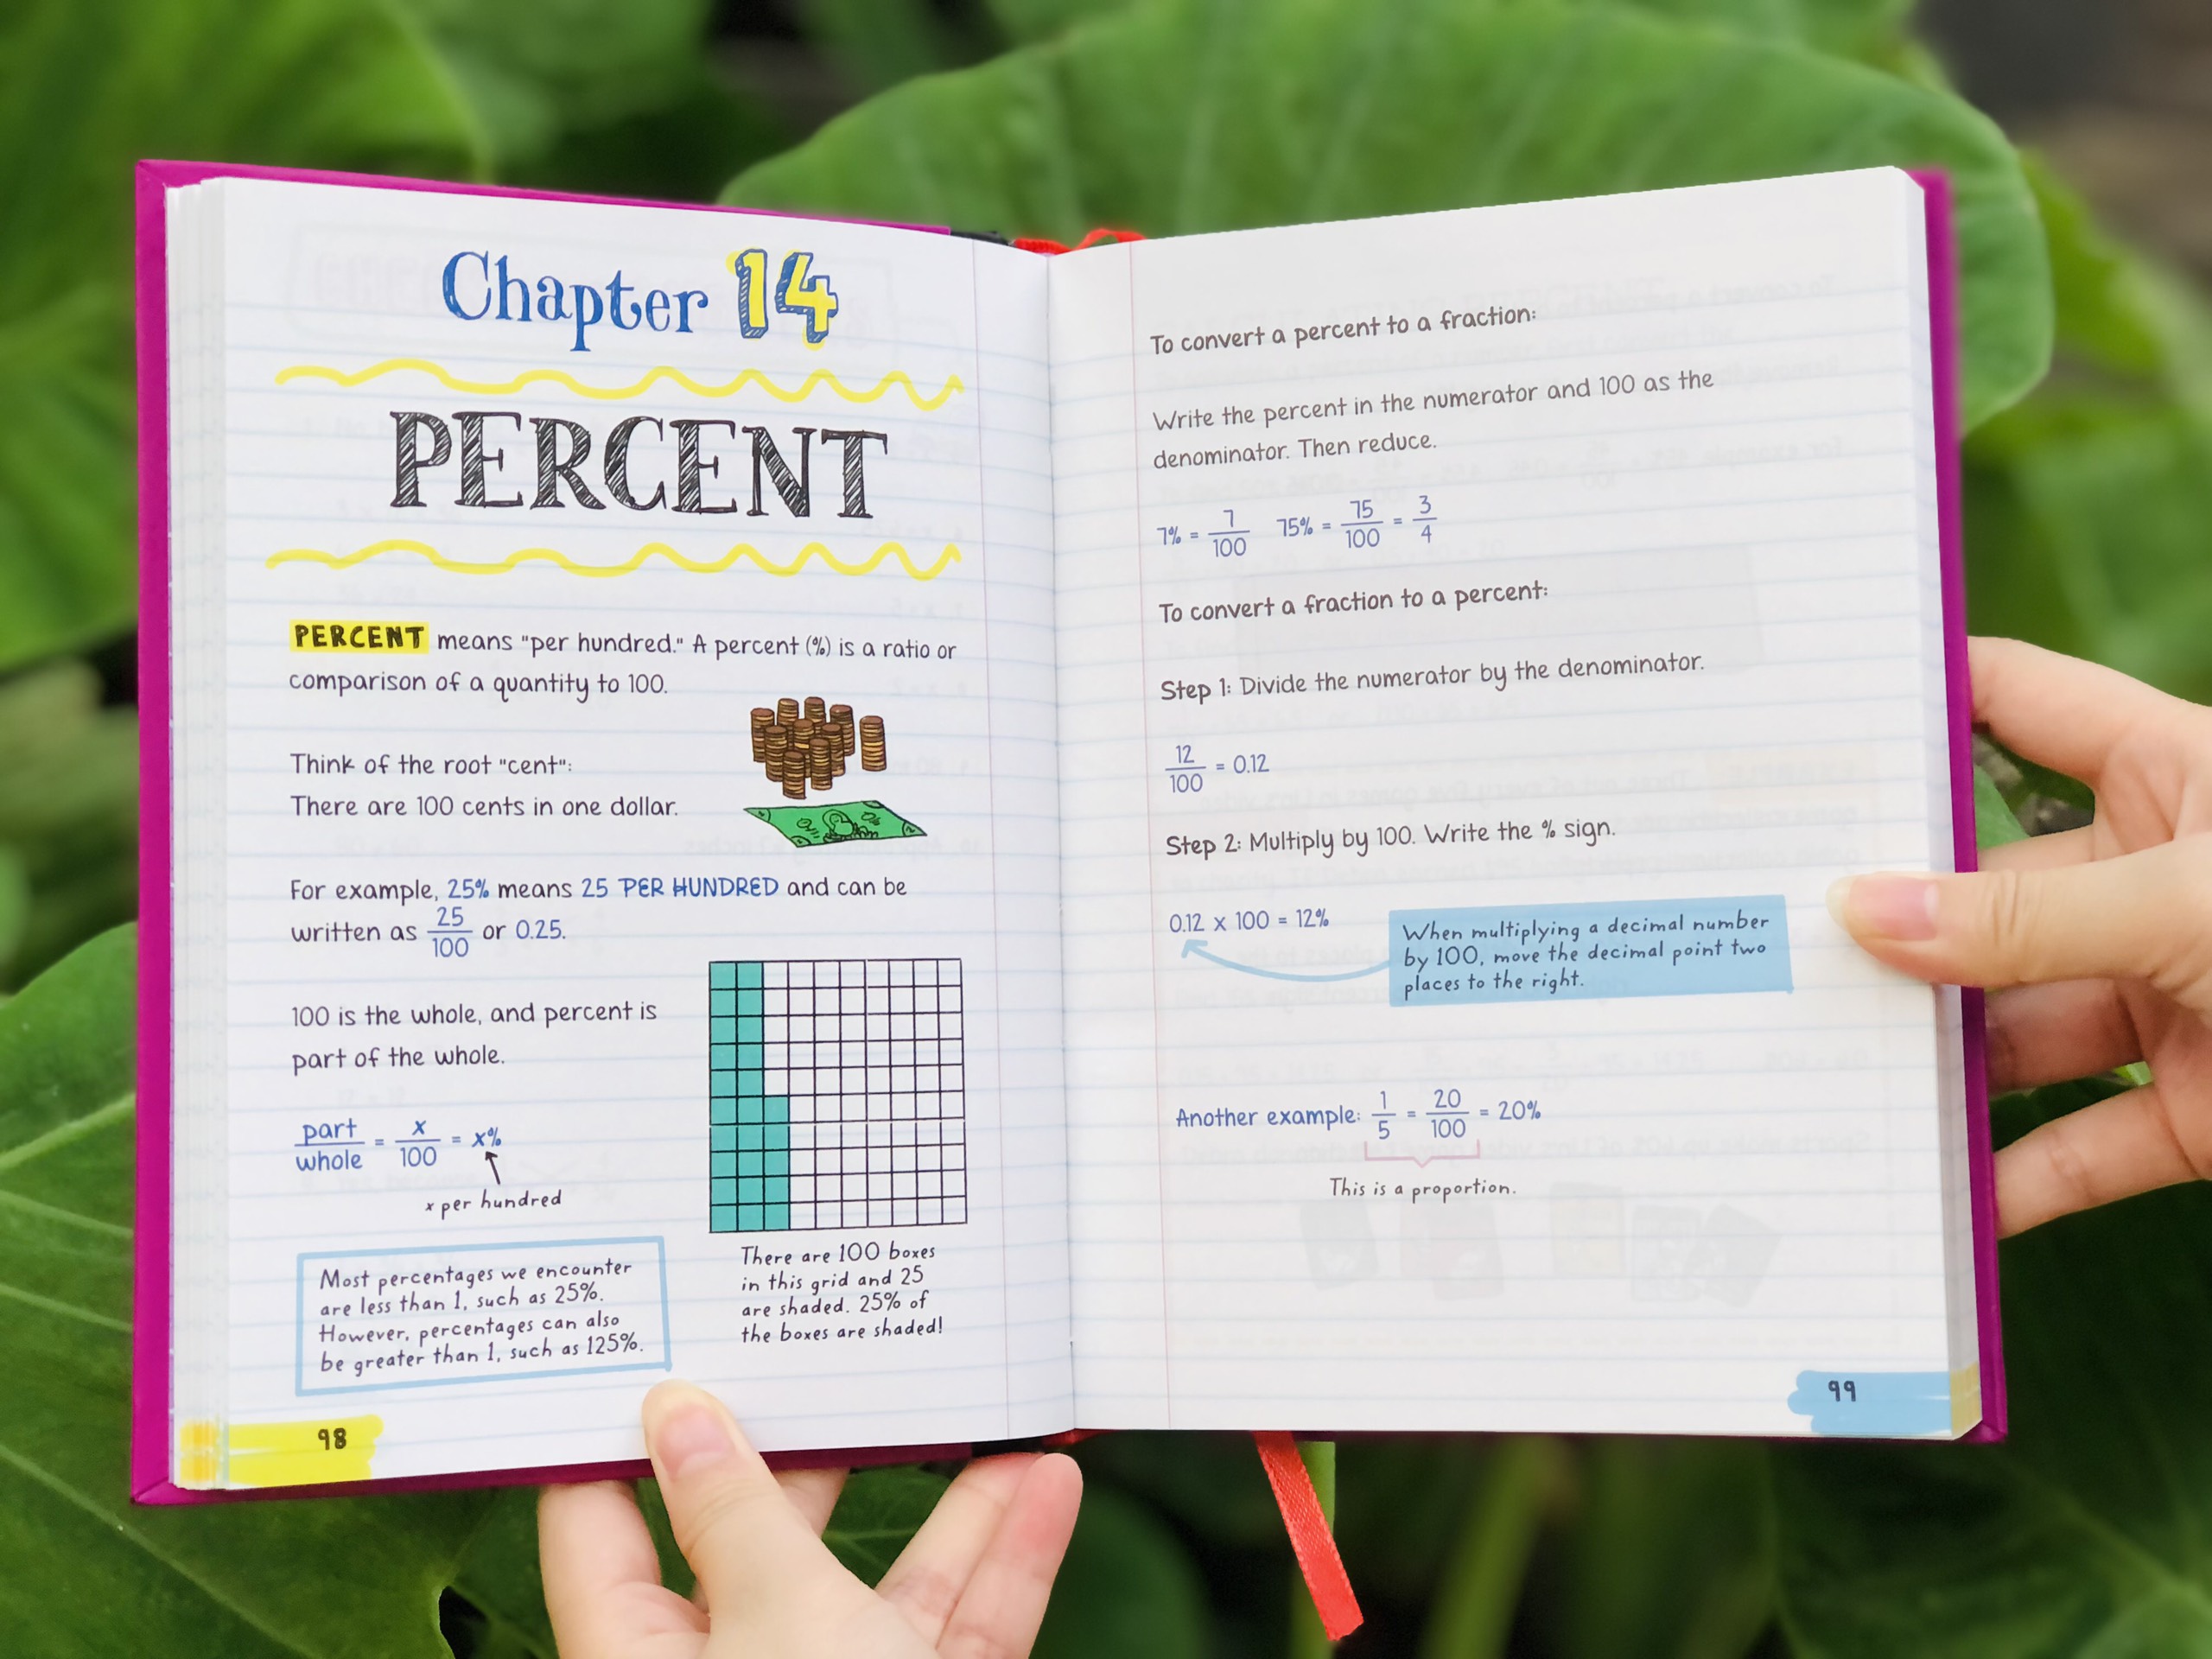 Chapter 14
PERCENT
PERCENT means "per hundred." A percent (%) is a ratio or
comparison of a quantity to 100.
Think of the root "cent":
There are 100 cents in one dollar.
For example, 25% means 25 PER HUNDRED and can be
written as 25/100 or 0.25.
100 is the whole, and percent is
part of the whole.
part/whole = x/100 = x%
x per hundred
Most percentages we encounter
are less than 1, such as 25%.
However, percentages can also
be greater than 1, such as 125%.
There are 100 boxes
in this grid and 25
are shaded. 25% of
the boxes are shaded!
98
To convert a percent to a fraction:
Write the percent in the numerator and 100 as the
denominator. Then reduce.
7% = 7/100 75% = 75/100 = 3/4
To convert a fraction to a percent:
Step 1: Divide the numerator by the denominator.
12/100 = 0.12
Step 2: Multiply by 100. Write the % sign.
0.12 x 100 = 12%
When multiplying a decimal number
by 100, move the decimal point two
places to the right.
Another example: 1/5 = 20/100 = 20%
This is a proportion.
99